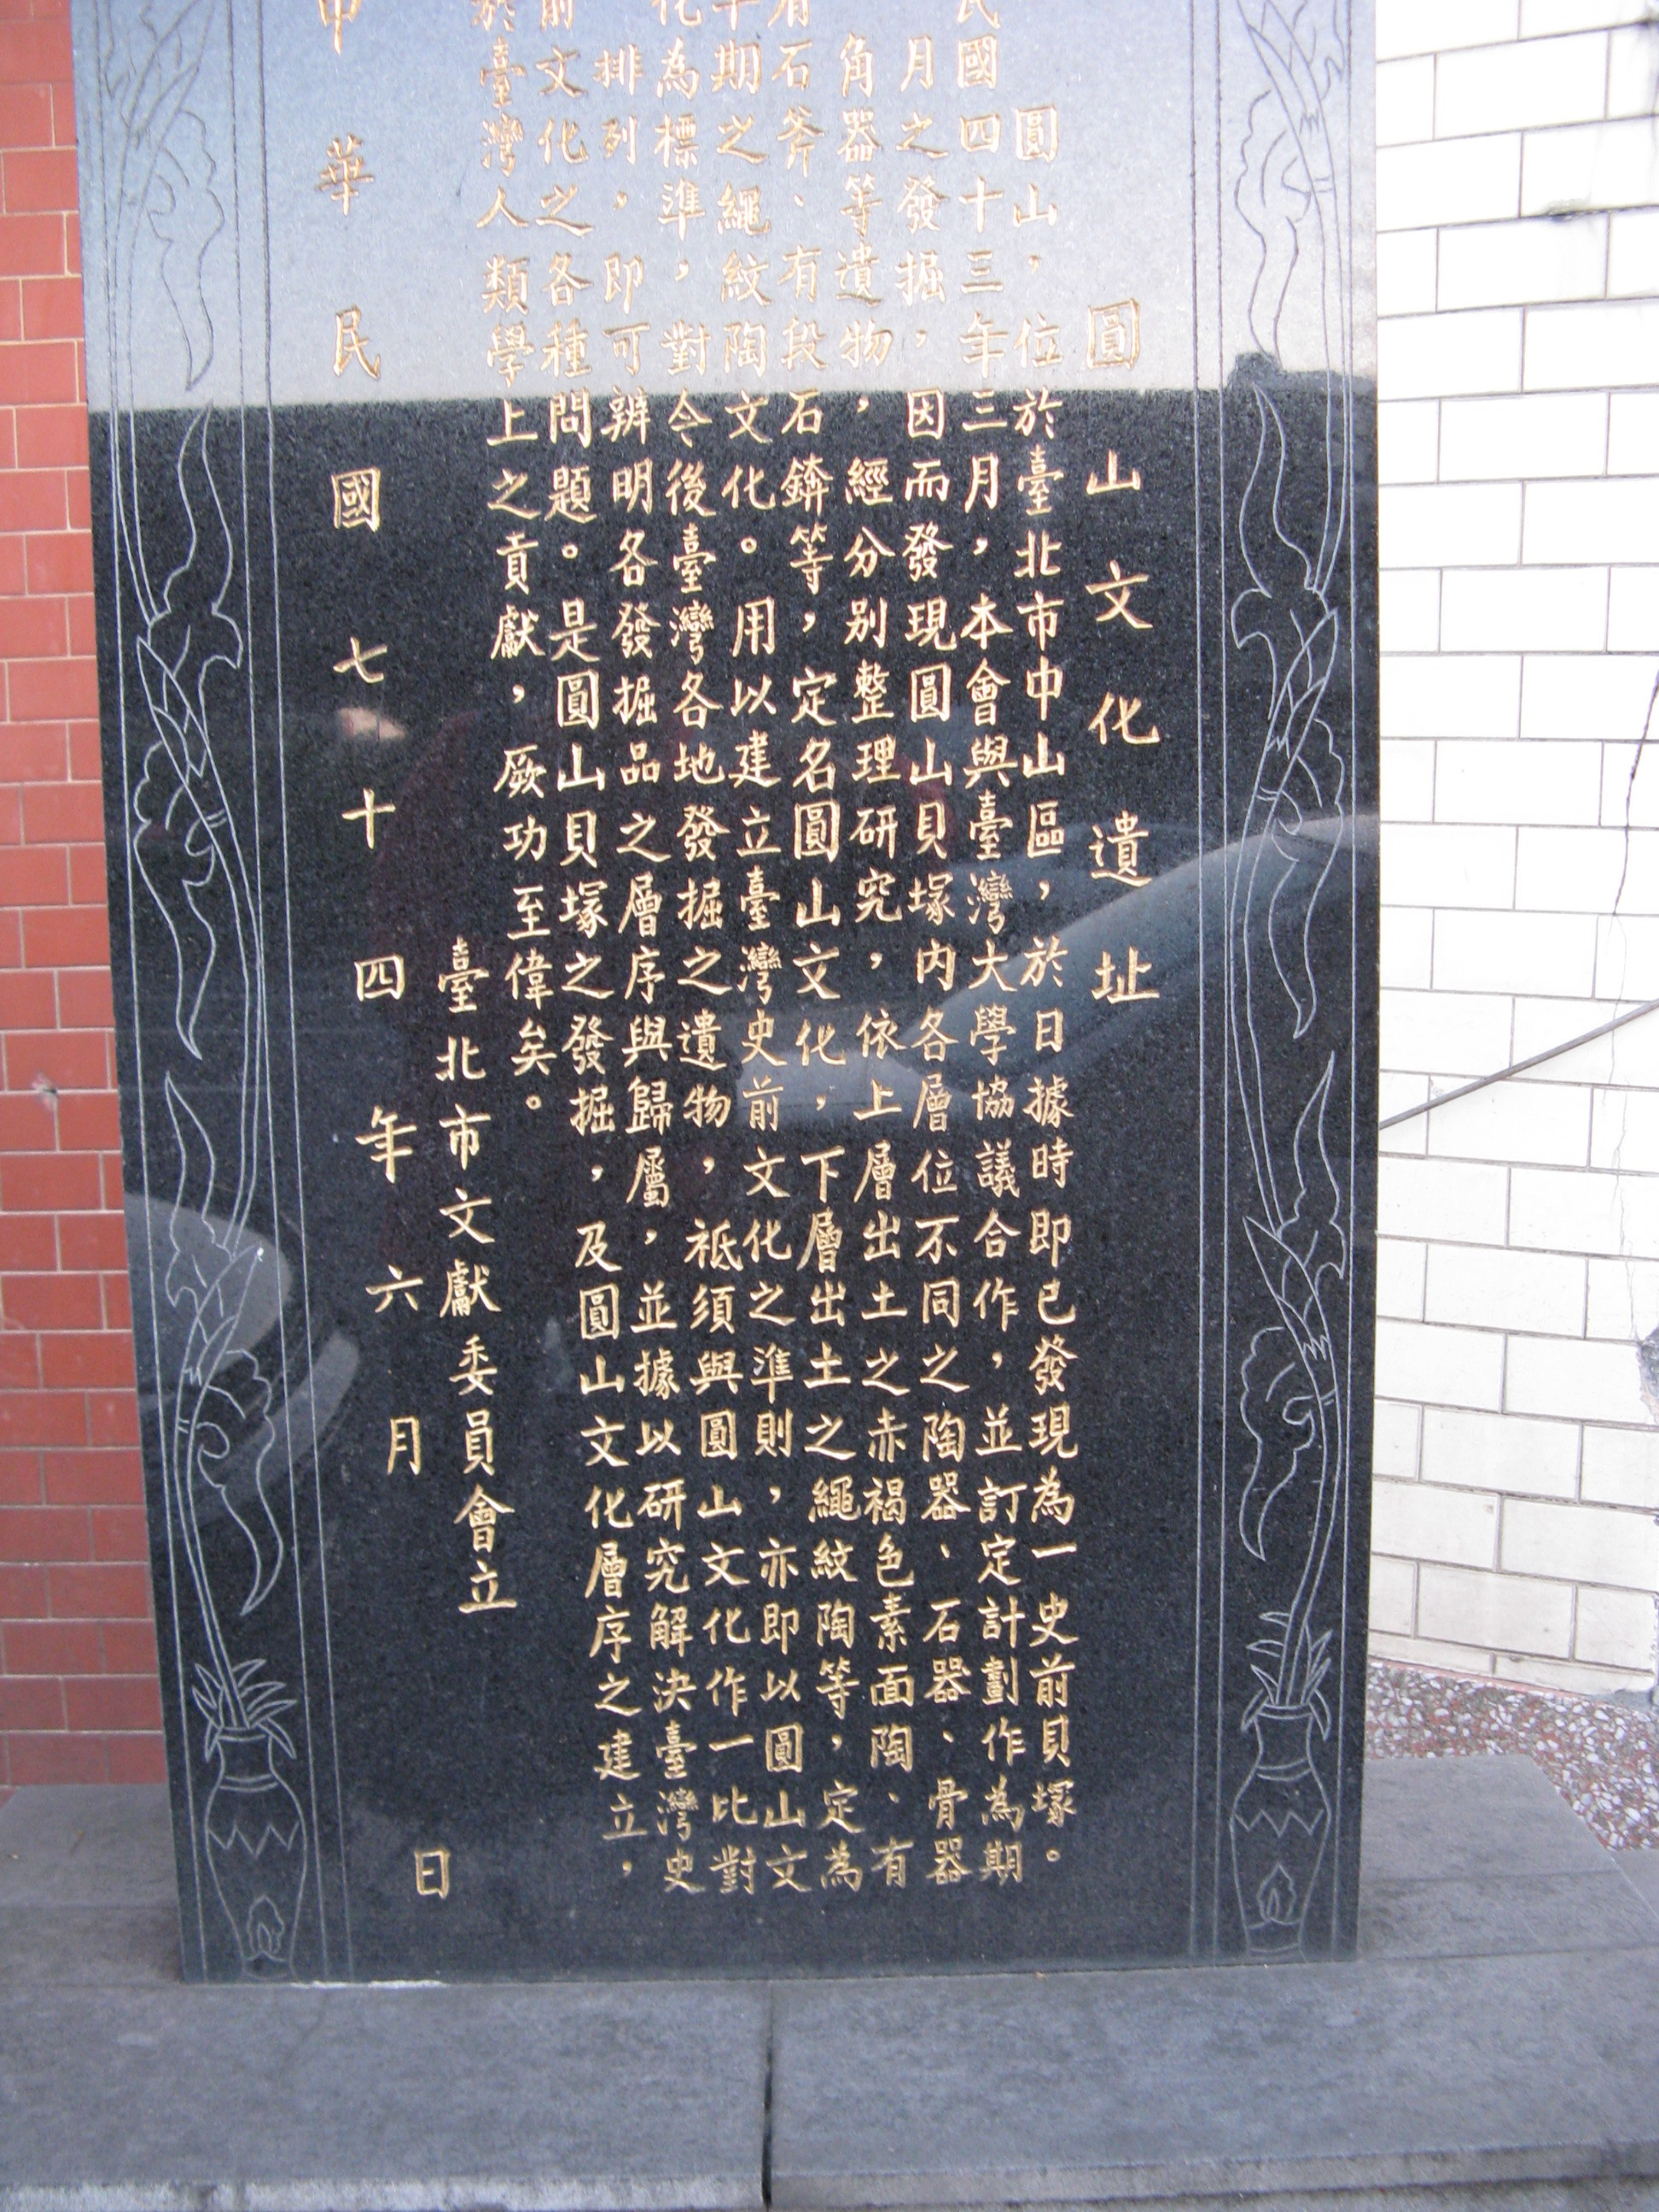 圓山文化遺址
圓山，位於臺北市中山區，於日據時即已發現為一史前貝塚。
民國四十三年三月，本會與臺灣大學協議合作，並訂定計劃作為期
月之發掘，因而發現圓山貝塚內各層位不同之陶器、石器、骨器
角器等遺物，經分別整理研究，依上層出土之赤褐色素面陶、有
石斧、有段石錛等，定名圓山文化，下層出土之繩紋陶等，定為
期之繩紋陶文化。用以建立臺灣史前文化之準則，亦即以圓山文
化為標準，對今後臺灣各地發掘之遺物，祗須與圓山文化作一比對
排列，即可辨明各發掘品之層序與歸屬，並據以研究解決臺灣史
前文化之各種問題。是圓山貝塚之發掘，及圓山文化層序之建立，
於臺灣人類學上之貢獻，厥功至偉矣。
臺北市文獻委員會立
中華民國七十四年六月日